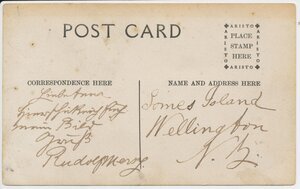 POST CARD
ARISTO
ARISTO
PLACE
STAMP
HERE
ARISTO
ARISTO
CORRESPONDENCE HERE
NAME AND ADDRESS HERE
Liebe Anna
mein Bild
Gruß
Rudolf
Somes Island
Wellington
N. Z.